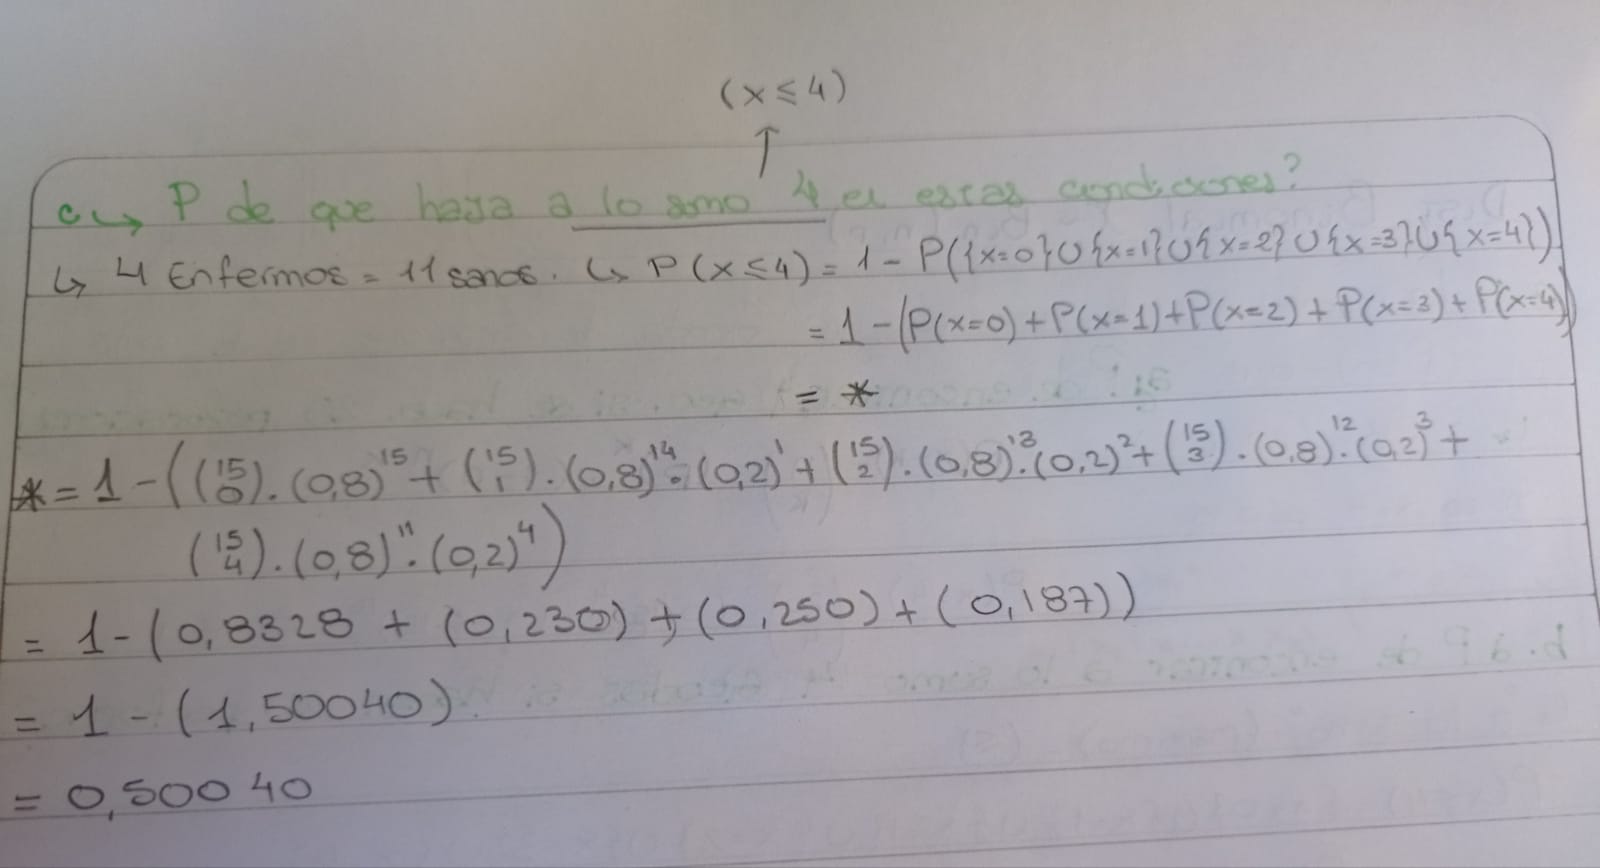 (x ≤ 4)
↑
c ↳ P de que haya a lo sumo 4 en estas condiciones?
↳ 4 Enfermos = 11 sanos. ↳ P(x ≤ 4) = 1 - P({x=0}∪{x=1}∪{x=2}∪{x=3}∪{x=4})
= 1 - (P(x=0) + P(x=1) + P(x=2) + P(x=3) + P(x=4))
= *
* = 1 - ((15 0) . (0,8)^15 + (15 1) . (0,8)^14 . (0,2)^1 + (15 2) . (0,8)^13 . (0,2)^2 + (15 3) . (0,8)^12 . (0,2)^3 +
(15 4) . (0,8)^11 . (0,2)^4)
= 1 - (0,8328 + (0,230) + (0,250) + (0,187))
= 1 - (1,50040)
= 0,50040